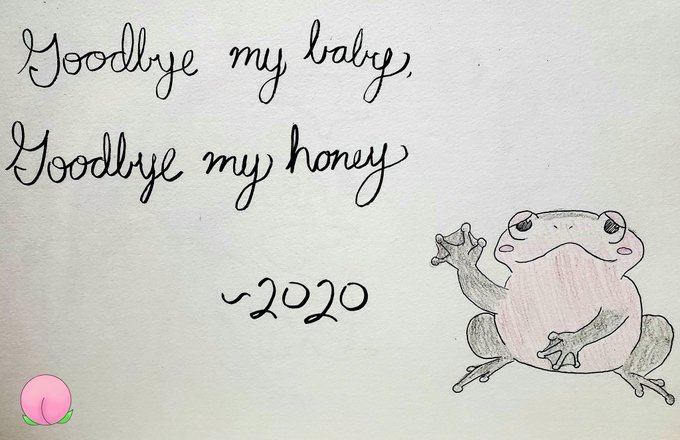 Goodbye my baby,
Goodbye my honey
~2020